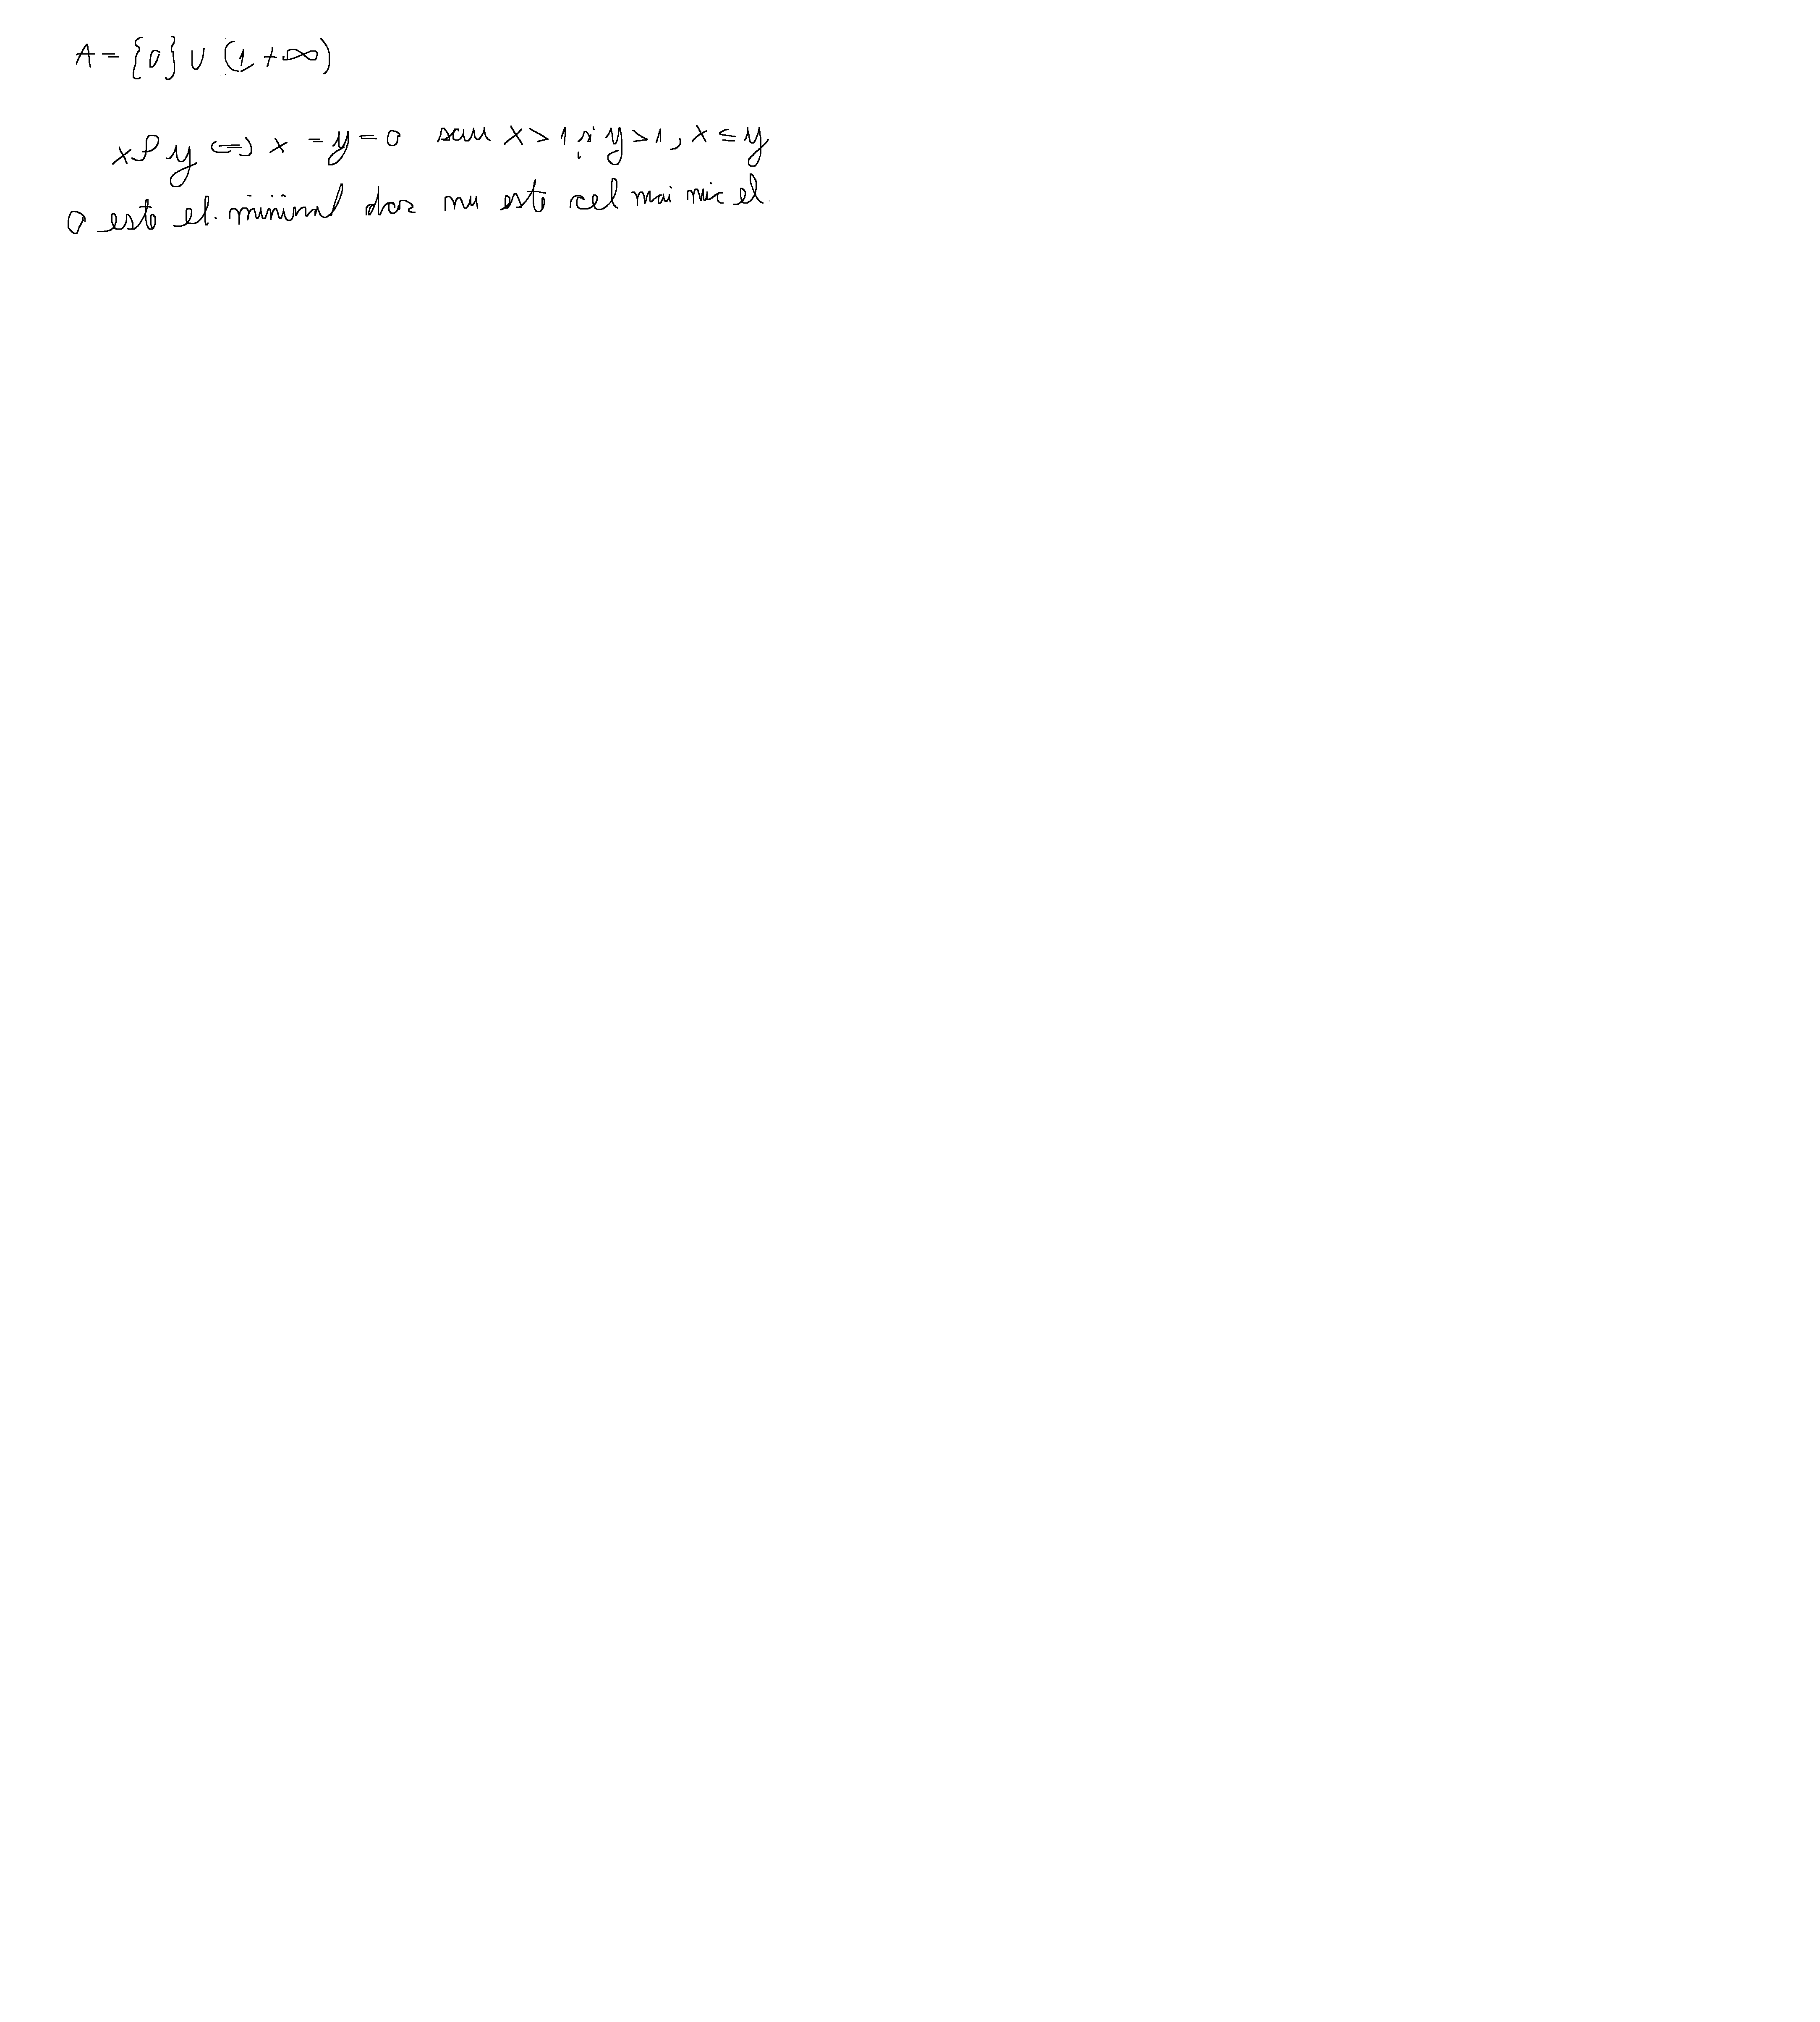 A = {0} ∪ (1, +∞)
xρy ⇔ x = y = 0 sau x > 1 și y > 1, x ≤ y
0 este el. minimal dar nu este cel mai mic el.